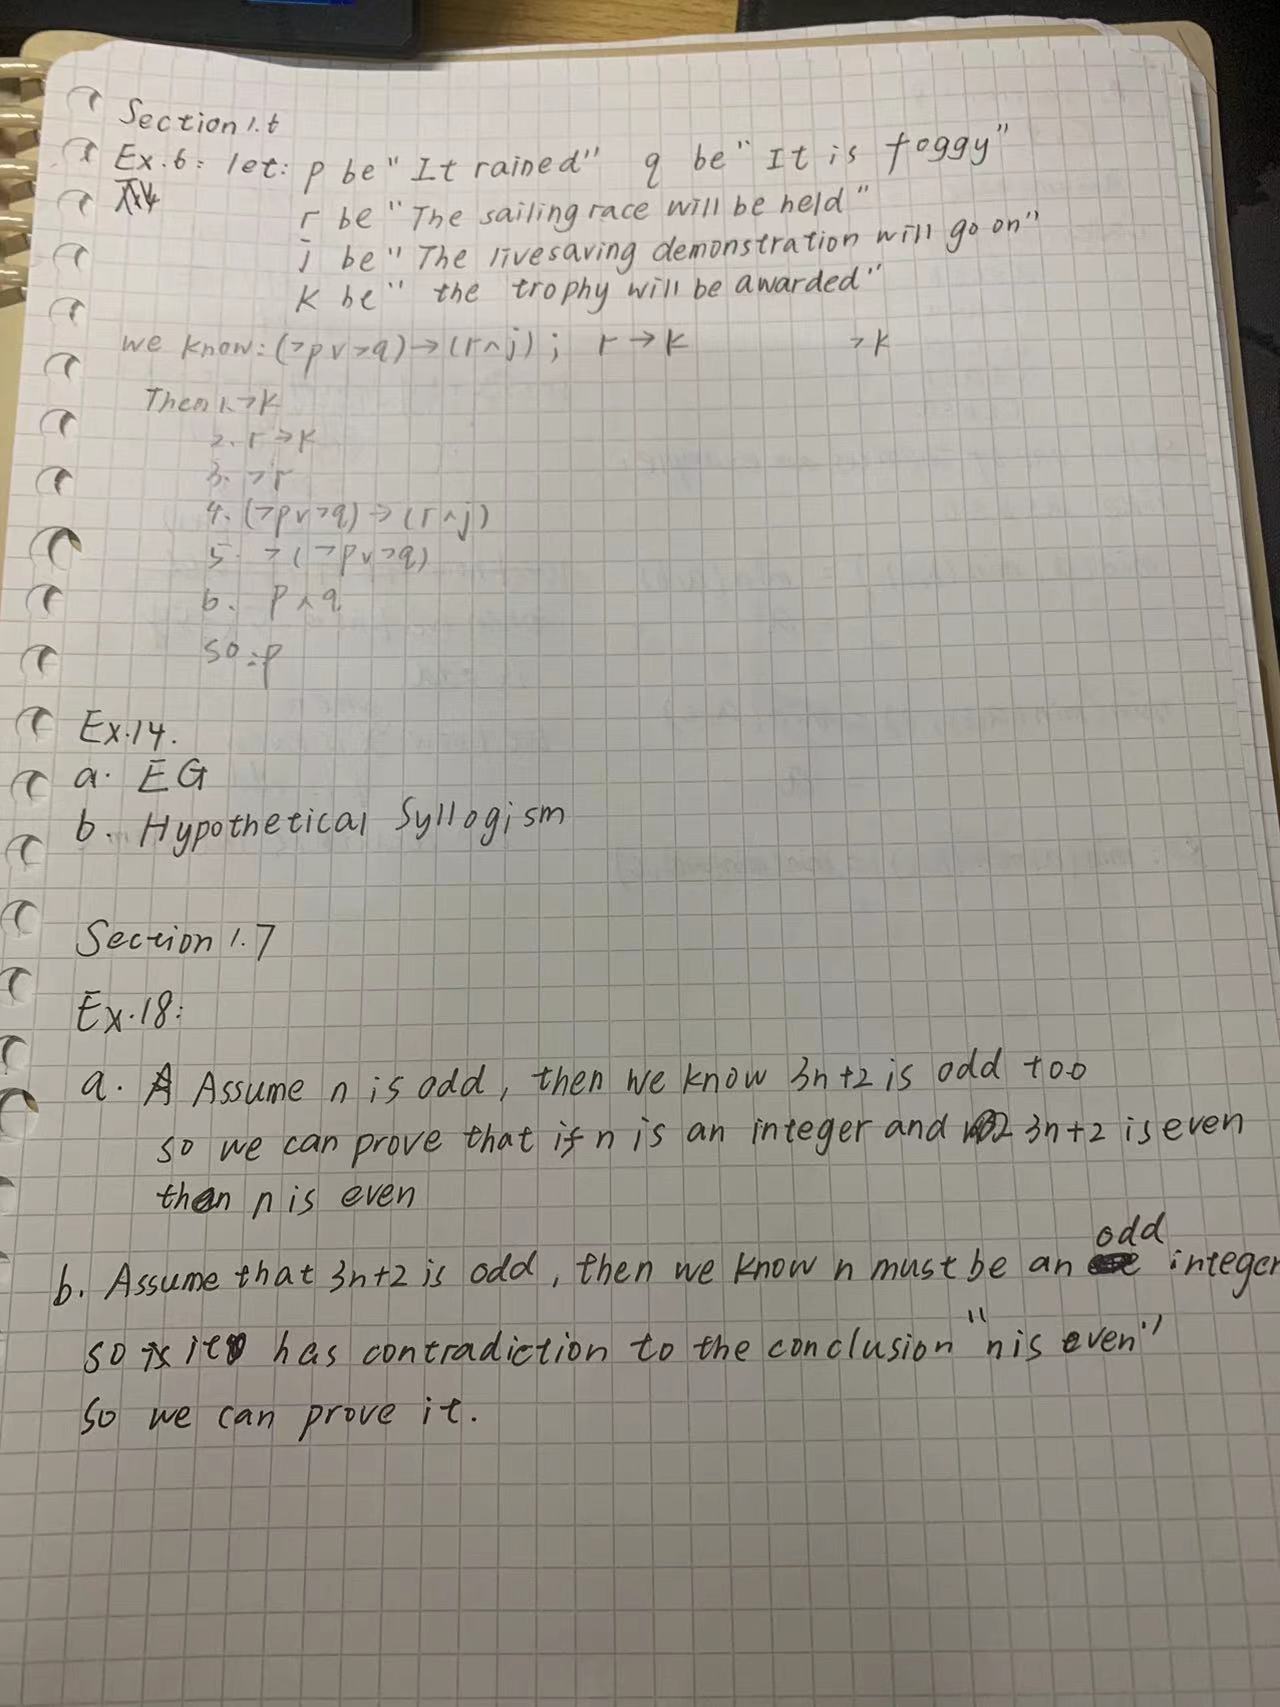 Section 1.6
Ex.6: let: p be "It rained" q be "It is foggy"
r be "The sailing race will be held"
j be "The livesaving demonstration will go on"
k be "the trophy will be awarded"
we know: (¬p∨¬q)→(r∧j); r→k ¬k
Then 1.¬k
2. r→k
3. ¬r
4. (¬p∨¬q)→(r∧j)
5. ¬(¬p∨¬q)
6. p∧q
so: p
Ex.14.
a. EG
b. Hypothetical Syllogism
Section 1.7
Ex.18:
a. Assume n is odd, then we know 3n+2 is odd too
so we can prove that if n is an integer and 3n+2 is even
then n is even
b. Assume that 3n+2 is odd, then we know n must be an odd integer
so it has contradiction to the conclusion "n is even"
so we can prove it.